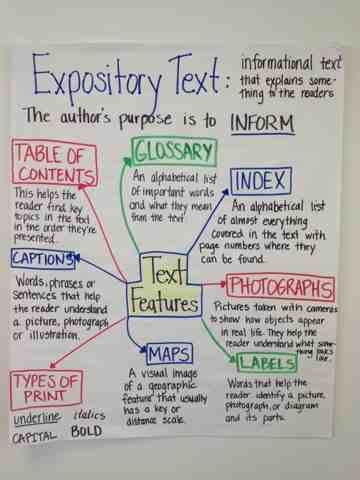 Expository Text:
informational text
that explains some-
thing to the readers
The author's purpose is to INFORM
TABLE OF
CONTENTS
This helps the
reader find key
topics in the text
in the order they're
presented.
GLOSSARY
An alphabetical list
of important words
and what they mean
from the text
INDEX
An alphabetical list
of almost everything
covered in the text with
page numbers where they
can be found.
CAPTIONS
Words, phrases or
sentences that help
the reader understand
a picture, photograph
or illustration.
Text
Features
PHOTOGRAPHS
Pictures taken with cameras
to show how objects appear
in real life. They help the
reader understand what some-
thing looks
like.
TYPES OF
PRINT
underline italics
CAPITAL BOLD
MAPS
A visual image
of a geographic
feature that usually
has a key or
distance scale.
LABELS
Words that help the
reader identify a picture,
photograph, or diagram
and its parts.